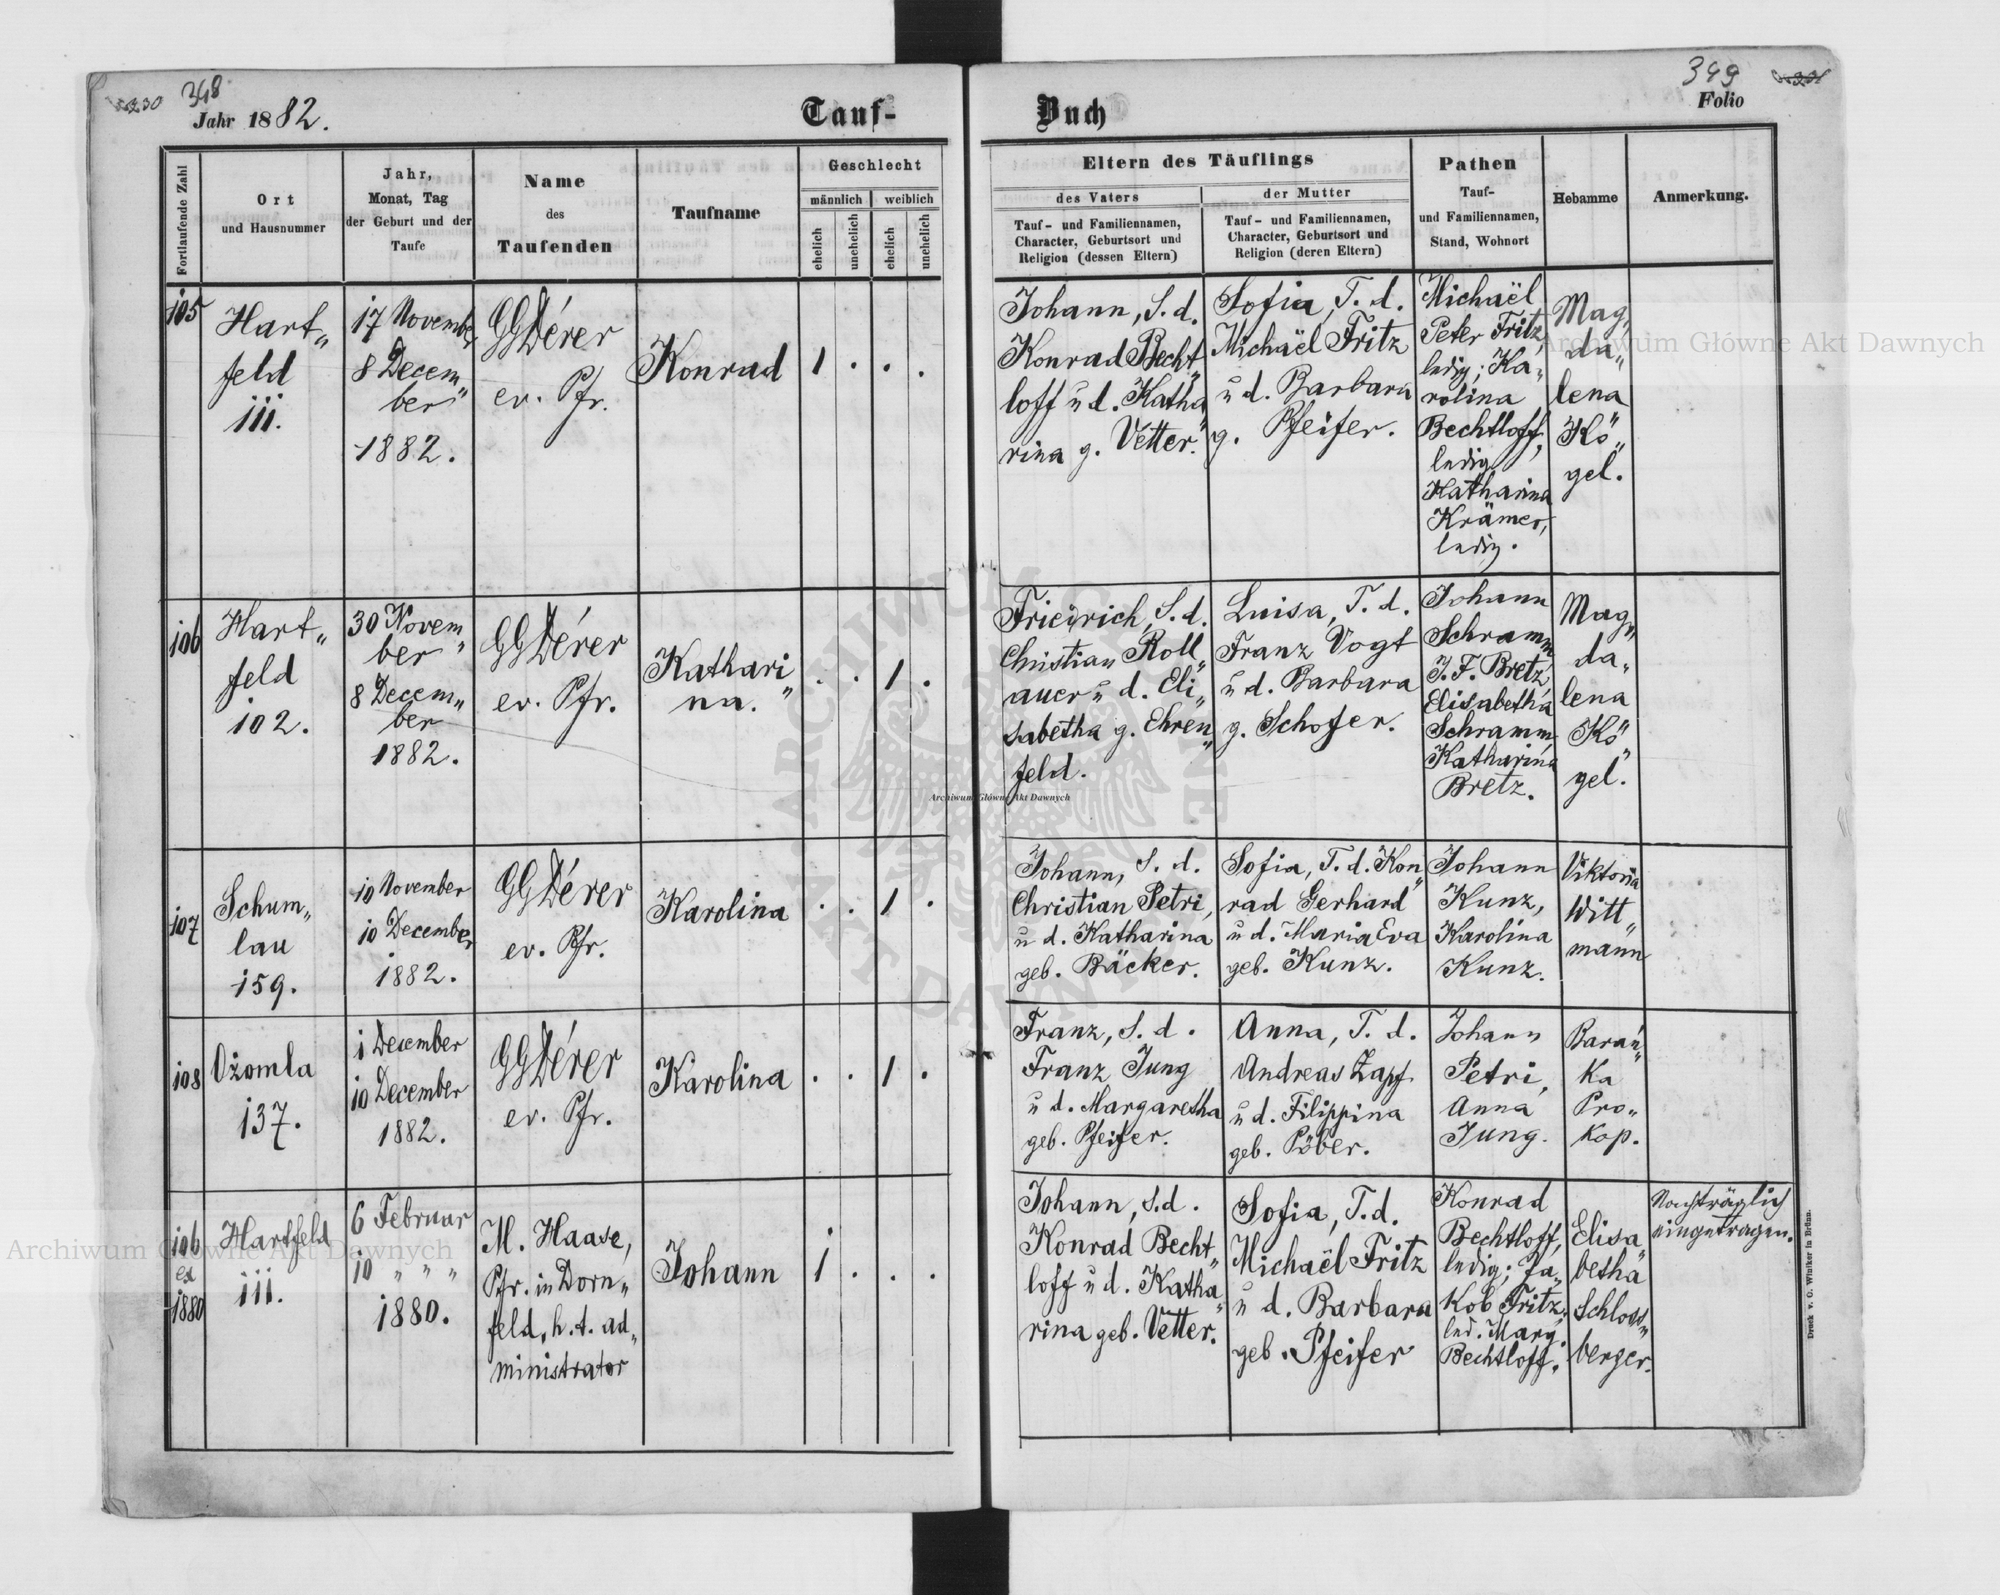 348
Jahr 1882.
Tauf-
Buch
349
Folio
Fortlaufende Zahl
Ort
und Hausnummer
Jahr,
Monat, Tag
der Geburt und der
Taufe
Name
des
Taufenden
Taufname
Geschlecht
männlich
weiblich
ehelich
unehelich
ehelich
unehelich
Eltern des Täuflings
des Vaters
Tauf- und Familiennamen,
Character, Geburtsort und
Religion (dessen Eltern)
der Mutter
Tauf- und Familiennamen,
Character, Geburtsort und
Religion (deren Eltern)
Pathen
Tauf-
und Familiennamen,
Stand, Wohnort
Hebamme
Anmerkung.
105
Hart„
feld
111.
17 November
8 Decem„
ber
1882.
GGDérer
ev. Pfr.
Konrad
1 . . .
Johann, S. d.
Konrad Becht„
loff u d. Katha„
rina g. Vetter.
Sofia, T. d.
Michaël Fritz
u d. Barbara
g. Pfeifer.
Michaël
Peter Fritz,
ledig; Ka„
rolina
Bechtloff,
ledig
Katharina
Krämer,
ledig.
Mag„
da„
lena
Kö„
gel.
106
Hart„
feld
102.
30 Novem„
ber
8 Decem„
ber
1882.
GGDérer
ev. Pfr.
Kathari„
na.
. . 1 .
Friedrich, S. d.
Christian Roll„
auer u d. Eli„
sabetha g. Ehren„
feld.
Luisa, T. d.
Franz Vogt
u d. Barbara
g. Schofer.
Johann
Schramm
J. F. Bretz,
Elisabetha
Schramm,
Katharina
Bretz.
Mag„
da„
lena
Kö„
gel.
107
Schum„
lau
159.
10 November
10 December
1882.
GGDérer
ev. Pfr.
Karolina
. . 1 .
Johann, S. d.
Christian Petri,
u d. Katharina
geb. Bäcker.
Sofia, T. d. Kon„
rad Gerhard
u d. Maria Eva
geb. Kunz.
Johann
Kunz,
Karolina
Kunz.
Viktoria
Witt„
mann
108
Ożomla
137.
1 December
10 December
1882.
GGDérer
ev. Pfr.
Karolina
. . 1 .
Franz, S. d.
Franz Jung
u d. Margaretha
geb. Pfeifer.
Anna, T. d.
Andreas Zapf
u d. Filippina
geb. Pöber.
Johann
Petri,
Anna
Jung.
Baran„
ka
Pro„
kop.
106
ex
1880
Hartfeld
111.
6 Februar
10 „ „ „
1880.
M. Haase,
Pfr. in Dorn„
feld, h. t. ad„
ministrator
Johann
1 . . .
Johann, S. d.
Konrad Becht„
loff u d. Katha„
rina geb. Vetter.
Sofia, T. d.
Michaël Fritz
u d. Barbara
geb. Pfeifer
Konrad
Bechtloff,
ledig; Ja„
kob Fritz,
led. Marg.
Bechtloff.
Elisa„
betha
Schloss„
berger.
Nachträglich
eingetragen.
Druck v. C. Winiker in Brünn.
Archiwum Główne Akt Dawnych
Archiwum Główne Akt Dawnych
Archiwum Główne Akt Dawnych